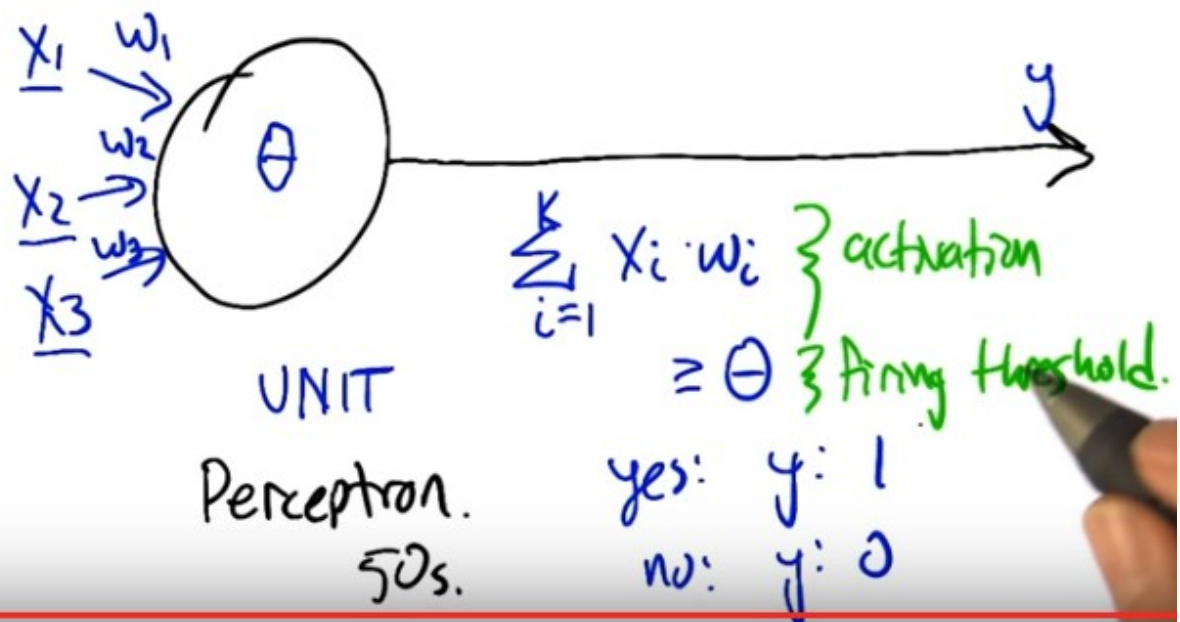 X1 w1
w2
X2
w3
X3
θ
y
K
Σ Xi · wi } activation
i=1
≥ θ } firing threshold.
UNIT
Perceptron.
50s.
yes: y: 1
no: y: 0